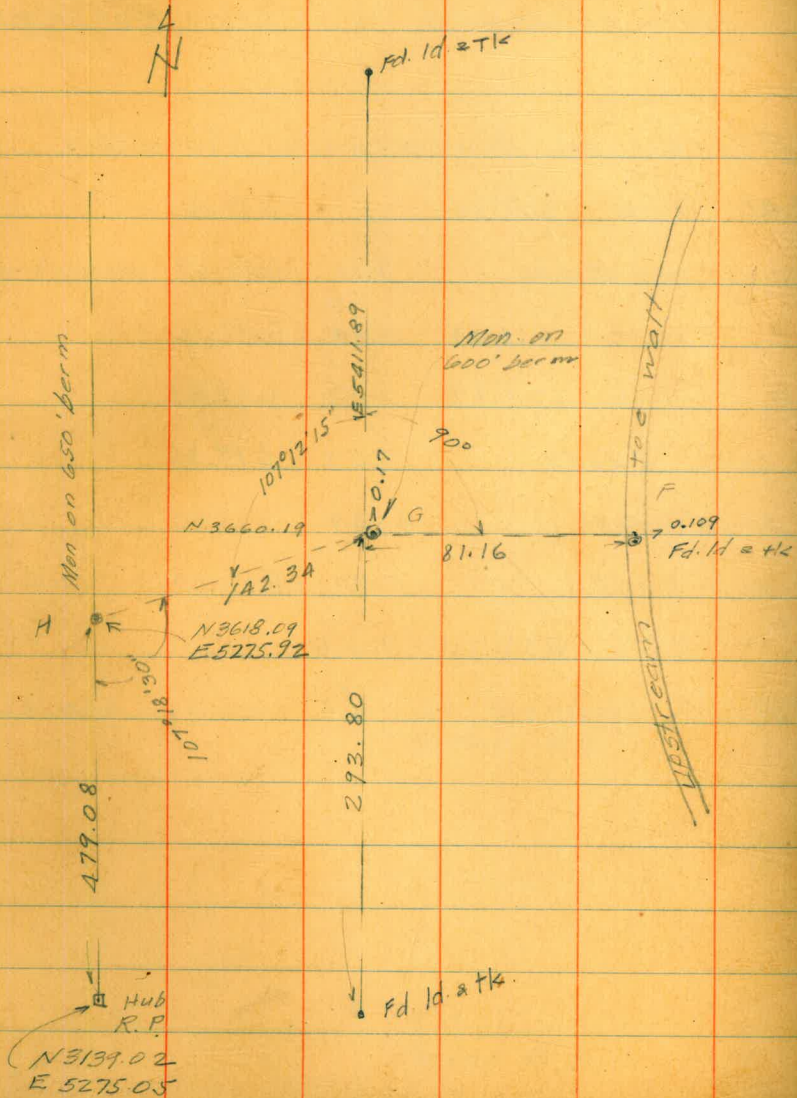 N
Fd. ld & Tk
Mon on 650' berm.
E5411.89
Mon. on
600' berm
toe wall
107°12'15"
90°
0.17
G
F
N3660.19
81.16
0.109
Fd. ld & tk
142.34
H
N3618.09
E5275.92
107°18'30"
upstream
293.80
479.08
Fd. ld & tk.
Hub
R.P.
N3139.02
E 5275.05